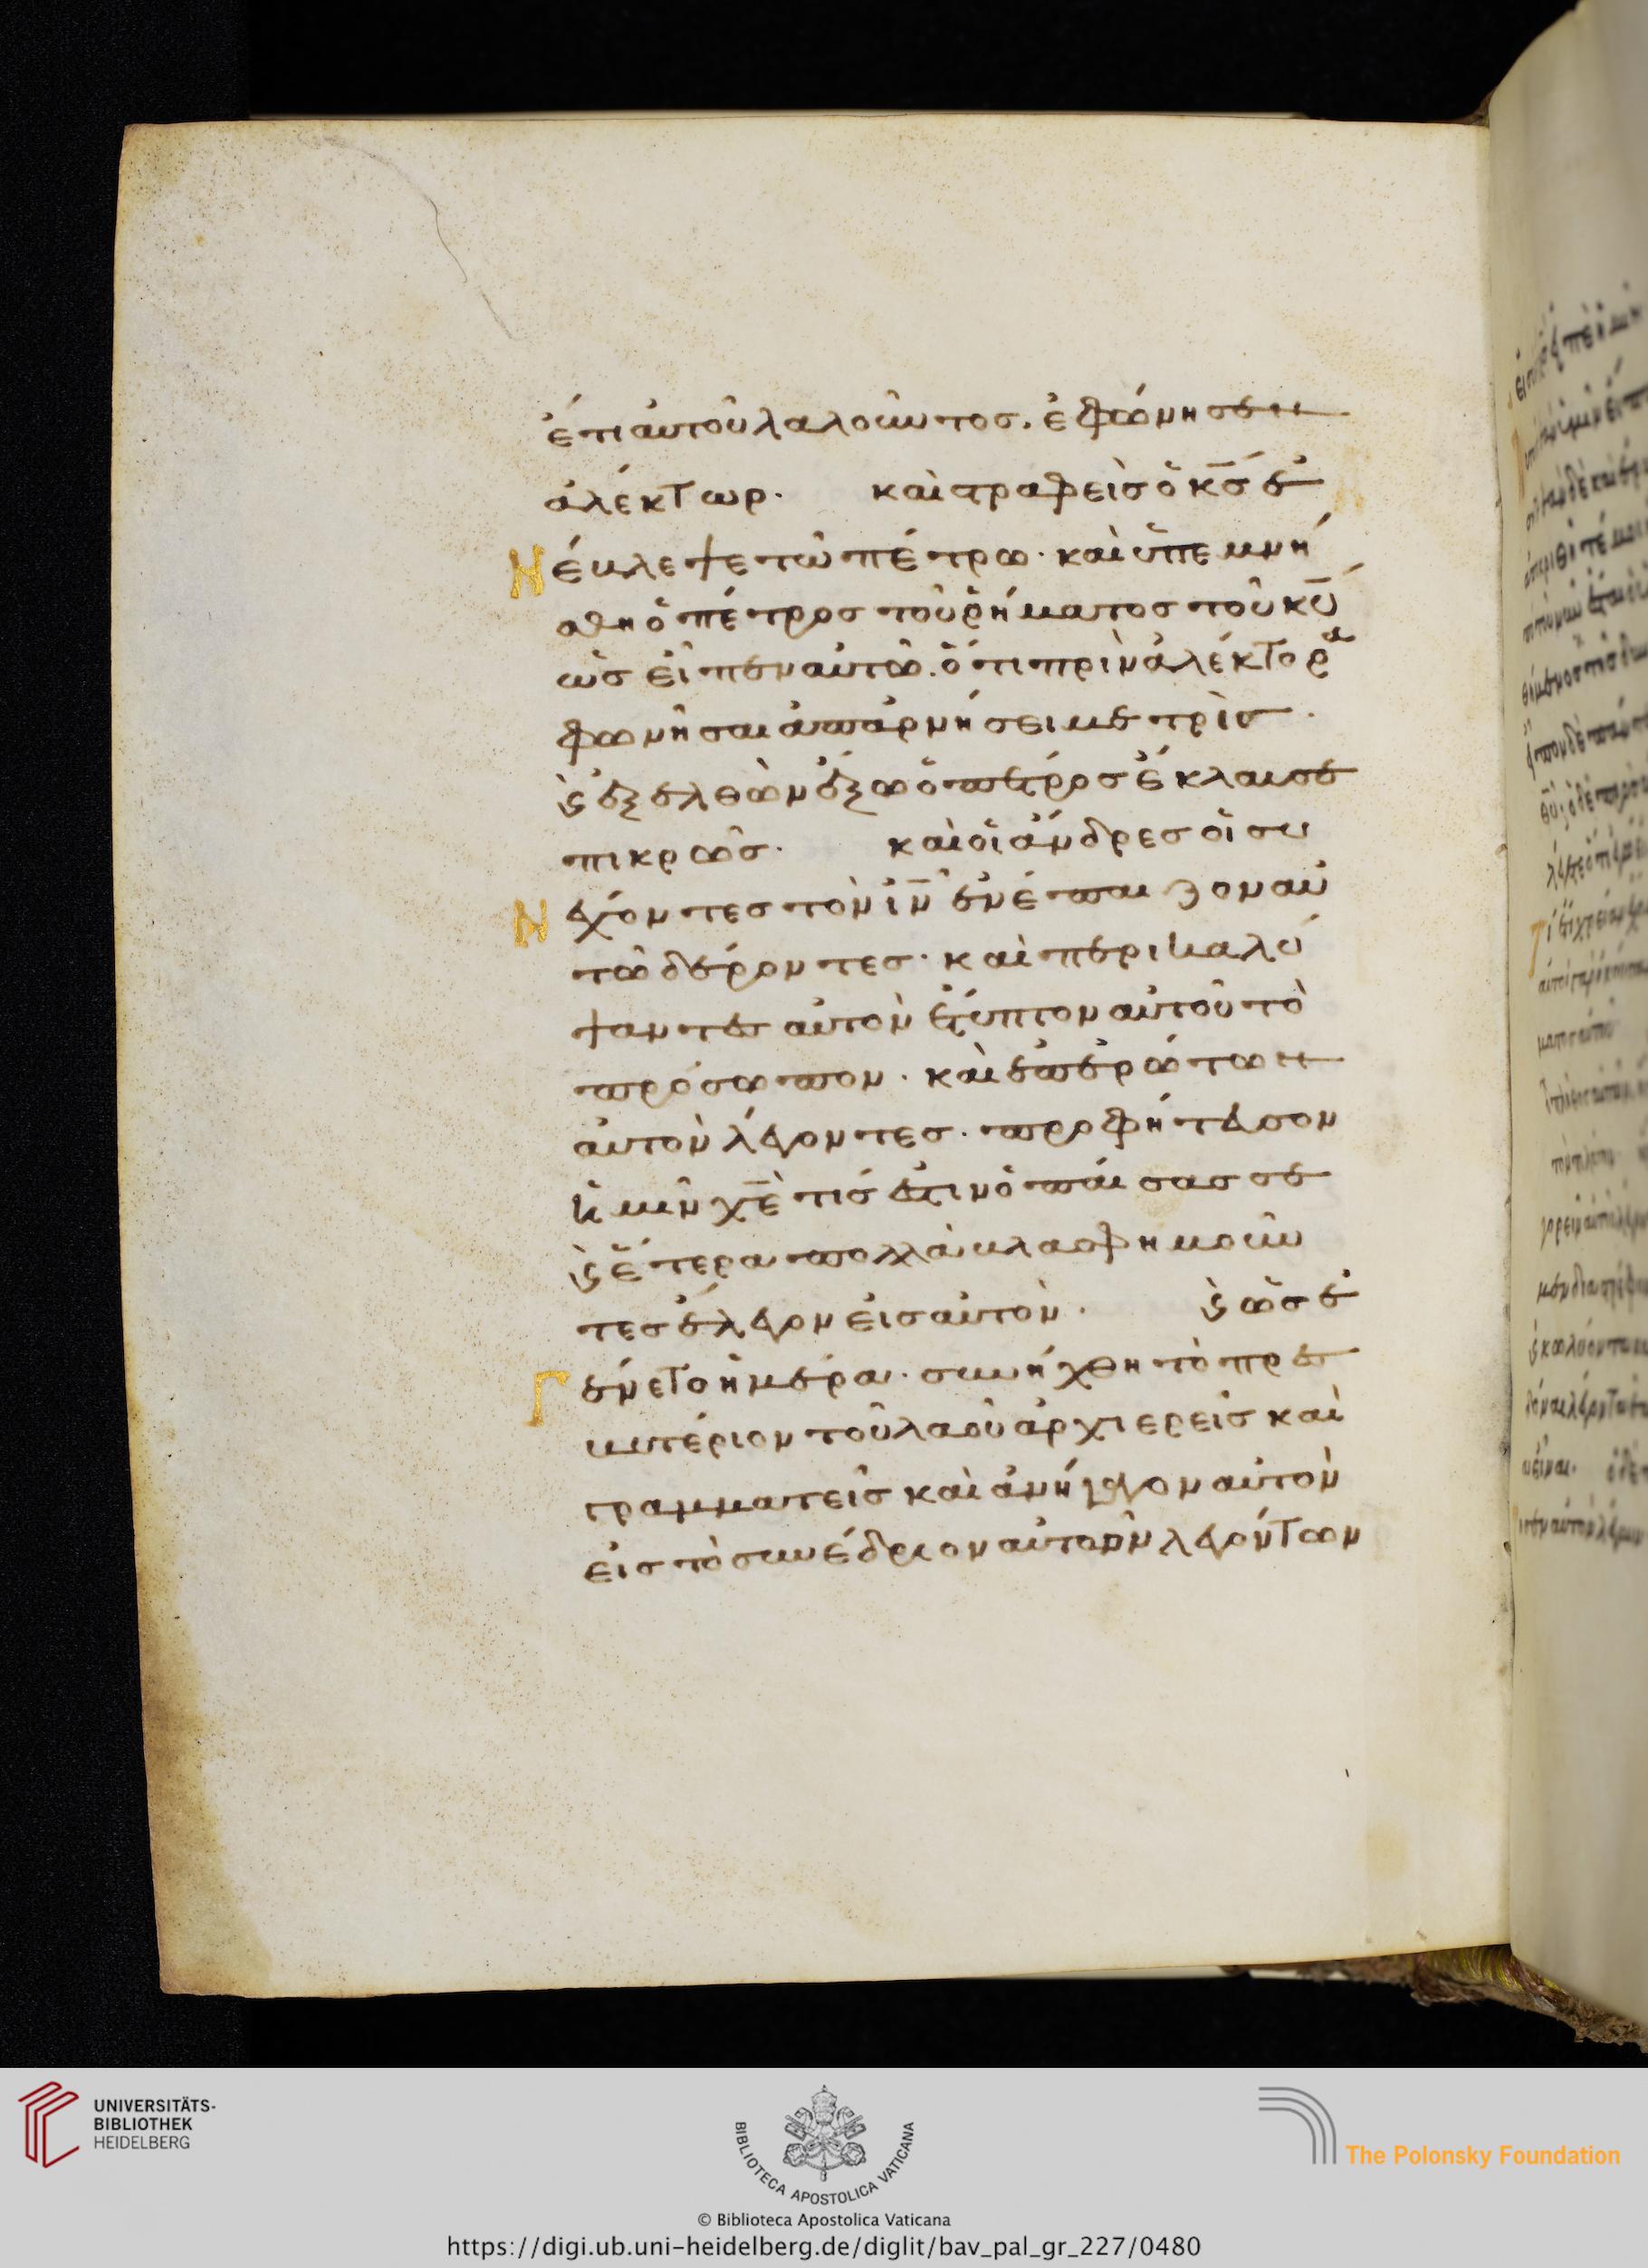 ἔτι αὐτοῦ λαλοῦντος. ἐφώνησεν
ἀλέκτωρ. καὶ στραφεὶς ὁ κ̅ς̅ ἐ
Νέβλεψε τῶ πέτρω. καὶ ὑπεμνή
σθη ὁ πέτρος τοῦ ῥήματος τοῦ κ̅υ̅
ὡς εἶπεν αὐτῶ. ὅτι πρὶν ἀλέκτορα
φωνῆσαι ἀπαρνήσει με τρίς.
ϗ ἐξελθὼν ἔξω ὁ πέτρος ἔκλαυσε
πικρῶς. καὶ οἱ ἄνδρες οἱ συ
Νέχοντες τὸν ι̅ν̅ ἐνέπαιζον αὐ
τῶ δέροντες. καὶ περικαλύ
ψαντες αὐτὸν ἔτυπτον αὐτοῦ τὸ
πρόσωπον. καὶ ἐπερώτων
αὐτὸν λέγοντες. προφήτευσον
ἡμῖν χ̅ε̅ τίς ἐστιν ὁ παίσας σε
ϗ ἕτερα πολλὰ βλασφημοῦν
τες ἔλεγον εἰς αὐτόν. ϗ ὡς ἐ
Γένετο ἡμέρα. συνήχθη τὸ πρεσ
βυτέριον τοῦ λαοῦ ἀρχιερεῖς καὶ
γραμματεῖς καὶ ἀνήγαγον αὐτὸν
εἰς τὸ συνέδριον αὐτῶν λέγόντων
UNIVERSITÄTS-
BIBLIOTHEK
HEIDELBERG
BIBLIOTECA APOSTOLICA VATICANA
The Polonsky Foundation
© Biblioteca Apostolica Vaticana
https://digi.ub.uni-heidelberg.de/diglit/bav_pal_gr_227/0480